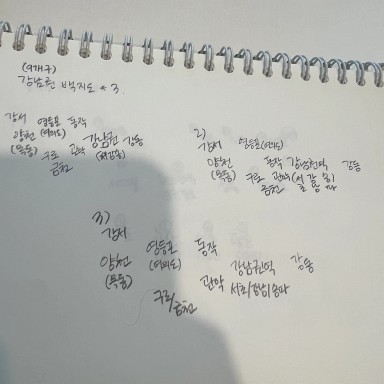 (9개구)
강남권 백지도 * 3.
강서 영등포 동작
양천 (여의도) 강남권 강동
(목동) 구로 관악
금천
2)
강서 영등포(여의도)
양천 동작 강남권역 강동
(목동) 구로 관악
금천
3)
강서
영등포 동작
양천 (여의도) 강남권역 강동
(목동) 관악 서초/강남/송파
구로
금천